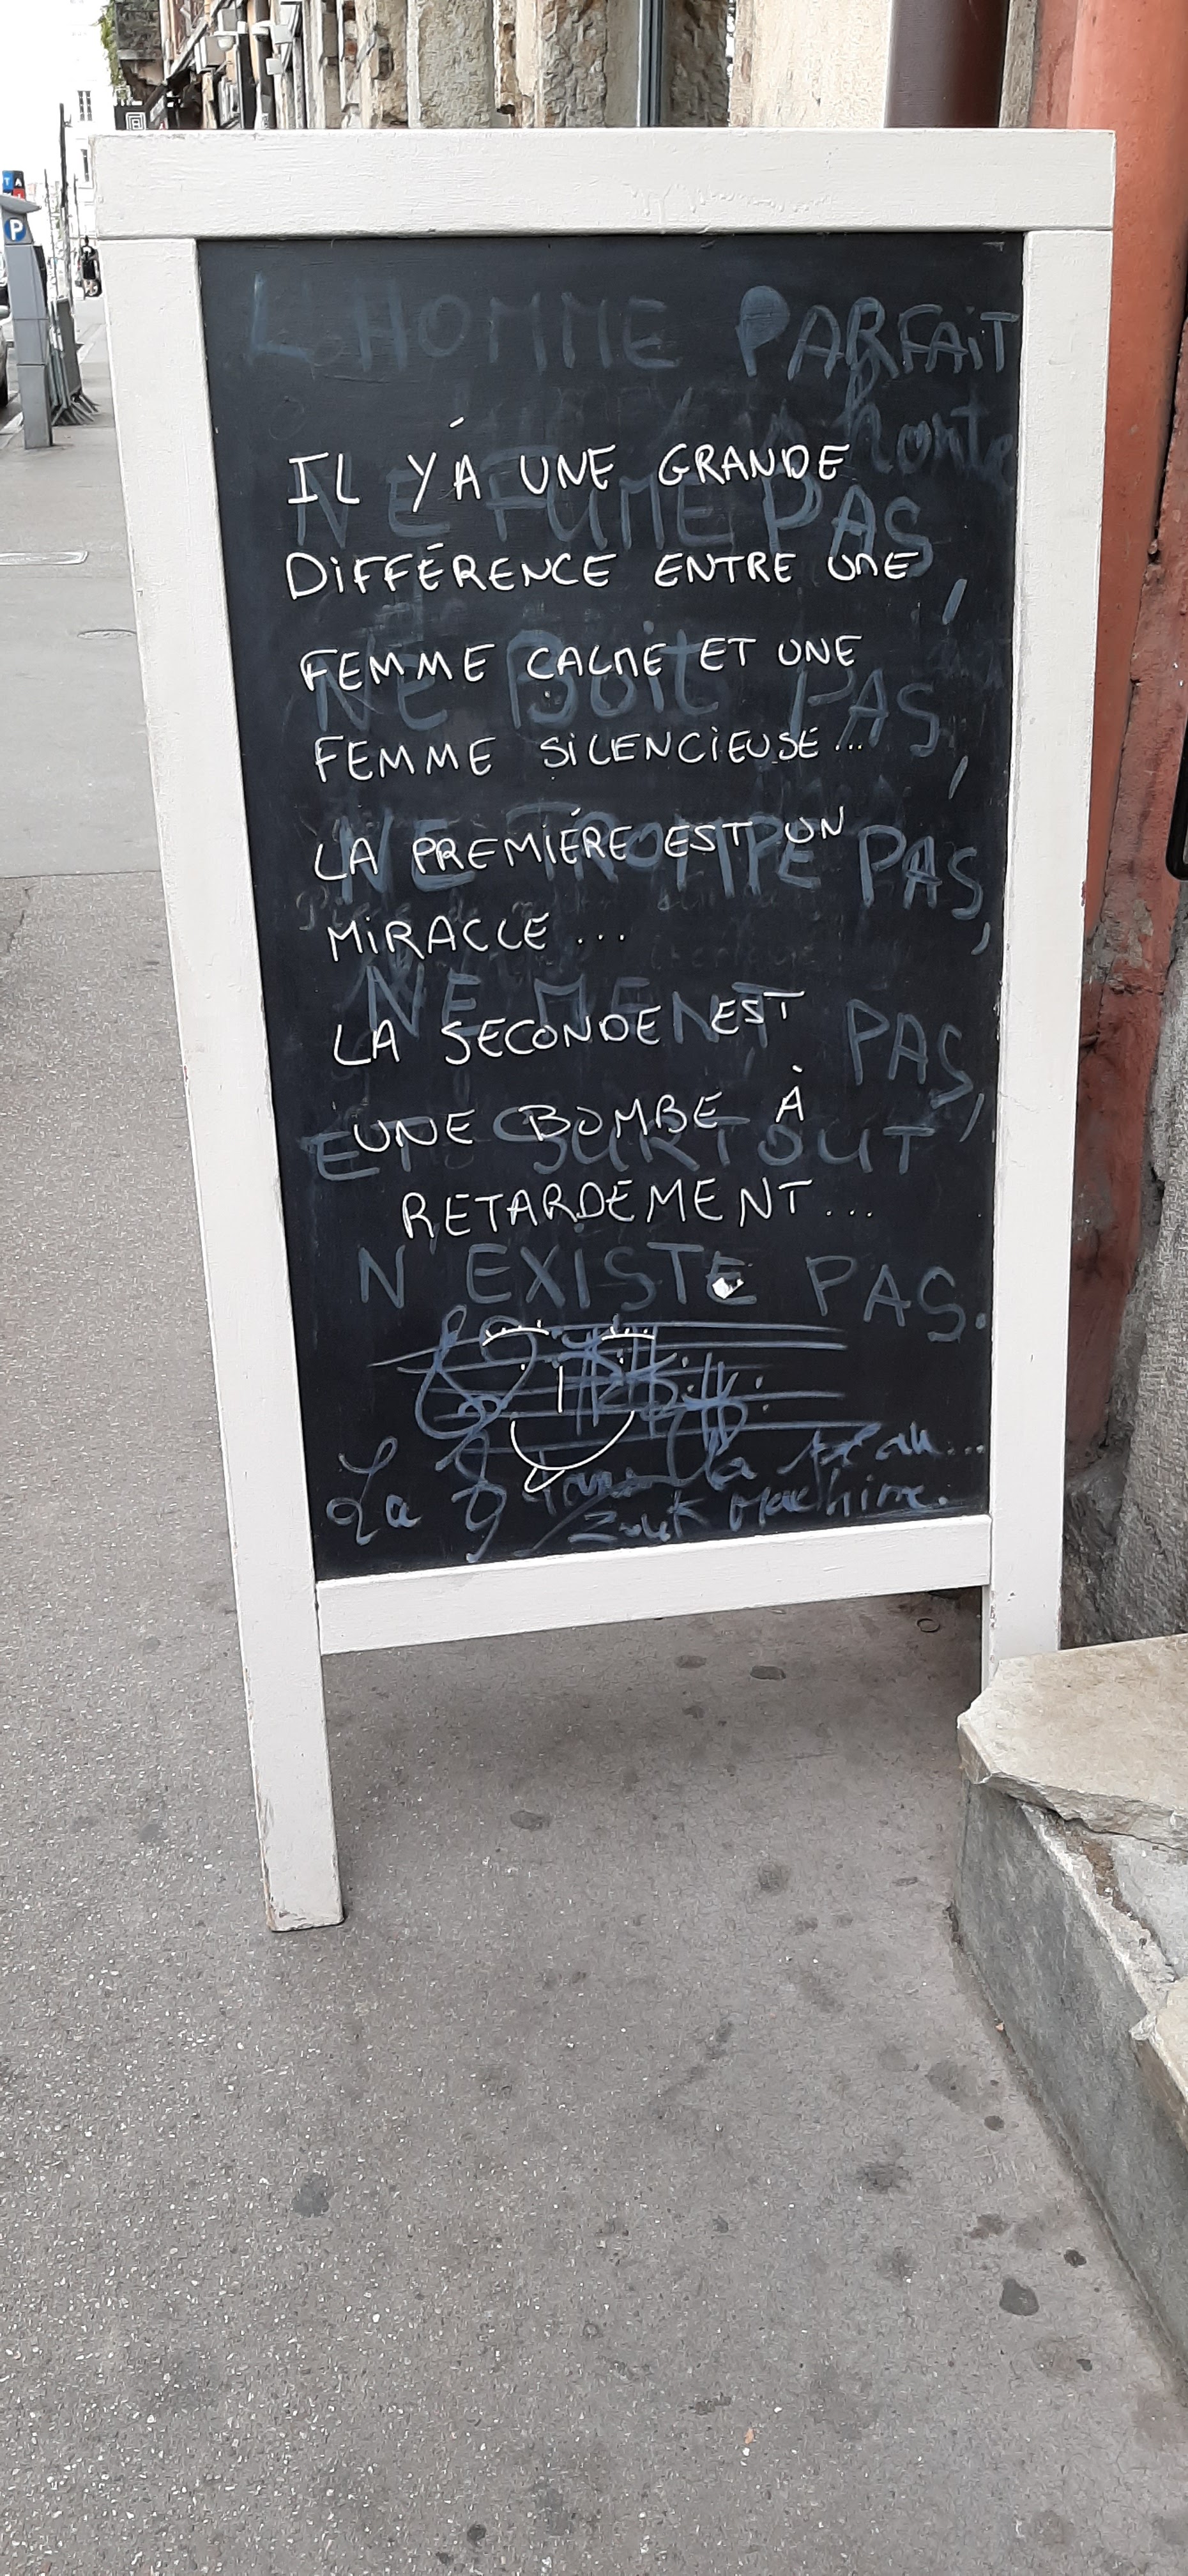 L'HOMME PARFAIT
honte
IL Y'A UNE GRANDE
NE FUME PAS,
DIFFÉRENCE ENTRE UNE
FEMME CALME ET UNE
NE BOIT PAS,
FEMME SILENCIEUSE...
LA PREMIÉRE EST UN
NE TROMPE PAS,
MIRACLE...
NE MENT PAS,
LA SECONDE EST
UNE BOMBE À
ET SURTOUT
RETARDEMENT...
N'EXISTE PAS.
La
Zouk Machine.
P